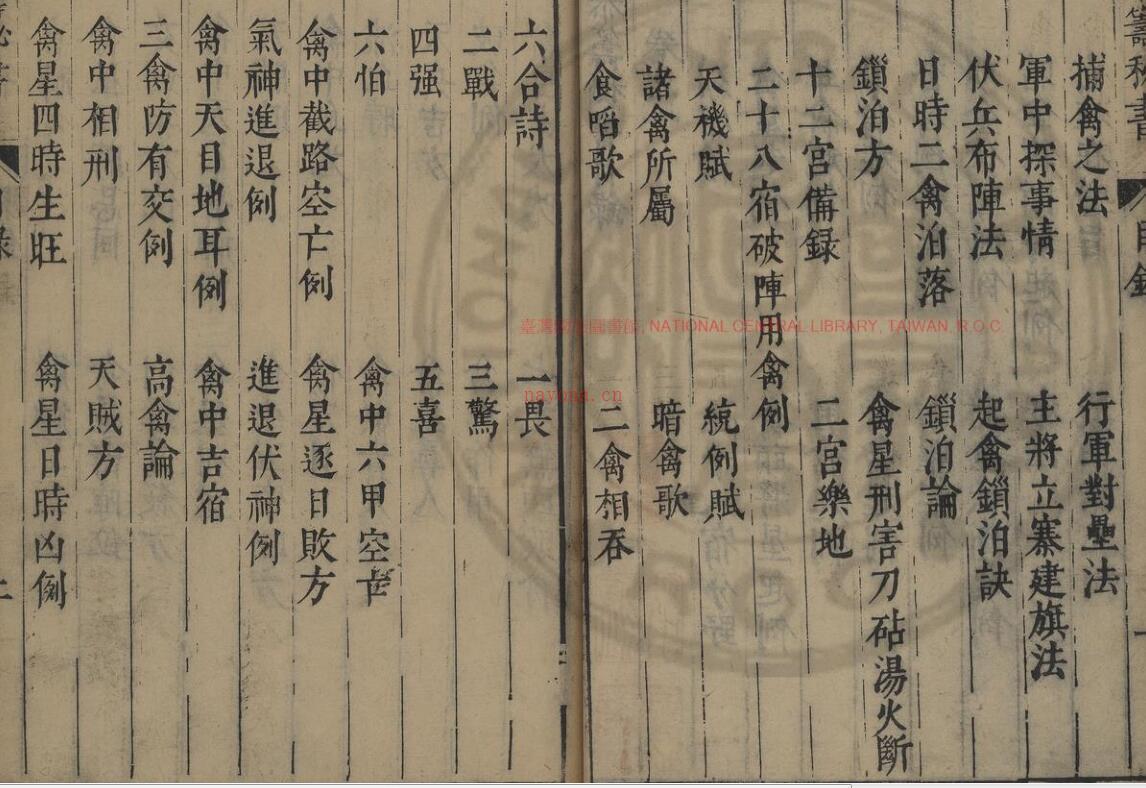 目錄
捕禽之法　行軍對壘法
軍中探事情　主將立寨建旗法
伏兵布陣法　起禽鎖泊訣
日時二禽泊落　鎖泊論
鎖泊方　禽星刑害刀砧湯火斷
十二宮備録　二宮樂地
二十八宿破陣用禽例
天禨賦　統例賦
諸禽所屬　暗禽歌
食啗歌　二禽相吞
六合詩　一畏
二戰　三驚
四强　五喜
六怕　禽中六甲空亡
禽中截路空亡例　禽星逐日敗方
氣神進退例　進退伏神例
禽中天目地耳例　禽中吉宿
三禽防有交例　高禽論
禽中相刑　天賊方
禽星四時生旺　禽星日時凶例
NATIONAL CENTRAL LIBRARY, TAIWAN, R.O.C.